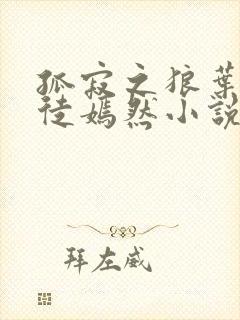 孤寂之狼葉
徒嫣然小說
拜左威